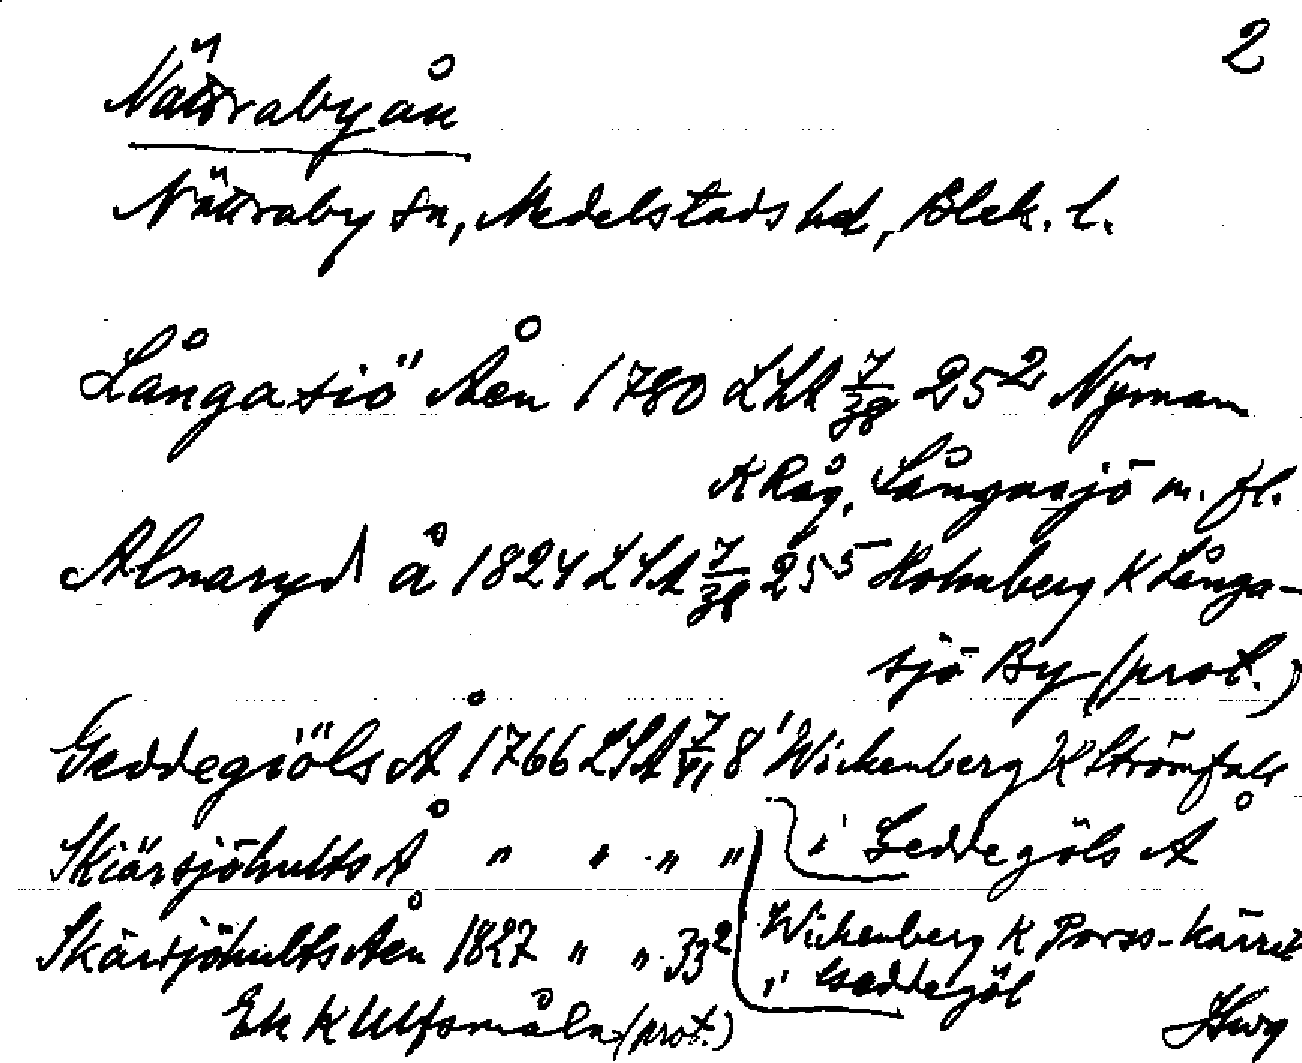 2
Nättrabyån
Nättraby sn, Medelstads hd, Blek. l.
Långasiö Åen 1780 LSA 7/38 25² Nyman
K Råg. Långasjö m. fl.
Alnaryd å 1824 LSA 7/38 25⁵ Holmberg K Långa-
sjö By (prot.)
Geddegiöls Å 1766 LSA 7/VI, 8¹ Wickenberg K Strömfall
Skiärsjöhults Å " " " " i Geddegöls Å
Skärsjöhults Åen 1827 " " 33² Wickenberg K Porss-kärret
i Gæddegöl
Ek K Ulfsmåla (prot.)